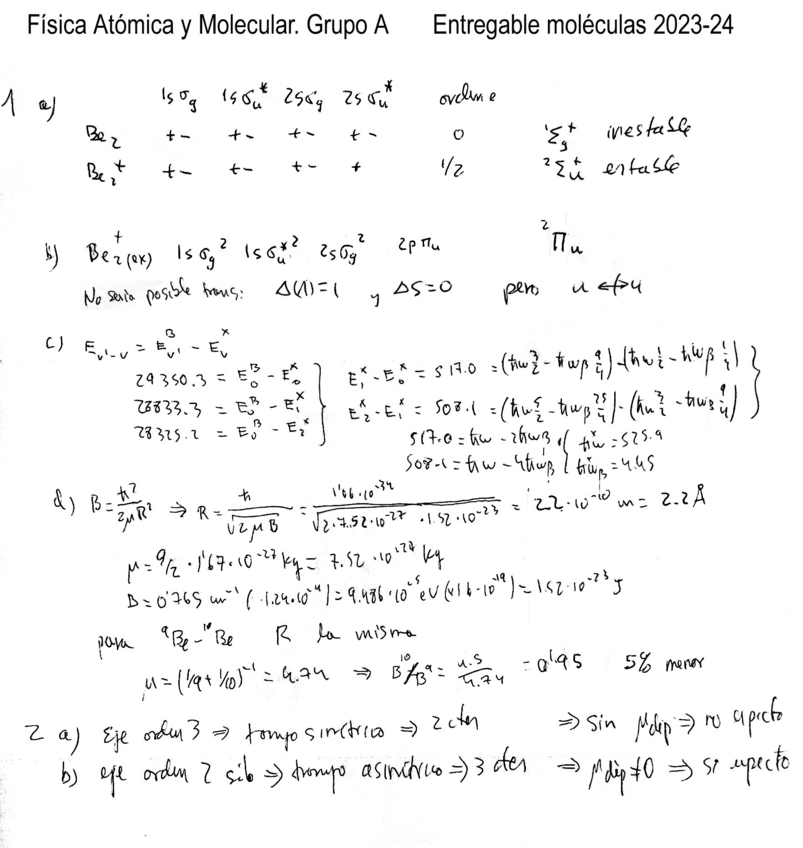 Física Atómica y Molecular. Grupo A Entregable moléculas 2023-24
1 a) 1sσg 1sσu* 2sσg 2sσu* ordine
Be₂ +- +- +- +- 0 ¹Σg⁺ inestable
Be₂⁺ +- +- +- + 1/2 ²Σu⁺ estable
b) Be₂⁺(ex) 1sσg² 1sσu*² 2sσg² 2pπu ²Πu
No sería posible trans: Δ(Λ)=1 y ΔS=0 pero u ↔ u
c) E_v'-v = E_v'^B - E_v^X
29350.3 = E₀^B - E₀^X
28833.3 = E₀^B - E₁^X
28325.2 = E₀^B - E₂^X
E₁^X - E₀^X = 517.0 = (ħω 3/2 - ħωβ 9/4) - (ħω 1/2 - ħωβ 1/4)
E₂^X - E₁^X = 508.1 = (ħω 5/2 - ħωβ 25/4) - (ħω 3/2 - ħωβ 9/4)
517.0 = ħω - 2ħωβ ħω^X = 525.9
508.1 = ħω - 4ħωβ ħωβ = 4.45
d) B = ħ²/2μR² ⇒ R = ħ/√(2μB) = 1'06·10⁻³⁴/√(2·7.52·10⁻²⁷·1.52·10⁻²³) = 2.2·10⁻¹⁰ m = 2.2 Å
μ = 9/2 · 1'67·10⁻²⁷ kg = 7.52·10⁻²⁷ kg
B = 0'765 cm⁻¹ (·1.24·10⁻⁴) = 9.486·10⁻⁵ eV (×1'6·10⁻¹⁹) = 1.52·10⁻²³ J
para ⁹Be-¹⁰Be R la misma
μ = (1/9+1/10)⁻¹ = 4.74 ⇒ B¹⁰/B⁹ = 4.5/4.74 = 0'95 5% menor
2 a) Eje orden 3 ⇒ trompo simétrico ⇒ 2 ctes ⇒ sin μdip ⇒ no espectro
b) eje orden 2 sólo ⇒ trompo asimétrico ⇒ 3 ctes ⇒ μdip ≠ 0 ⇒ si espectro